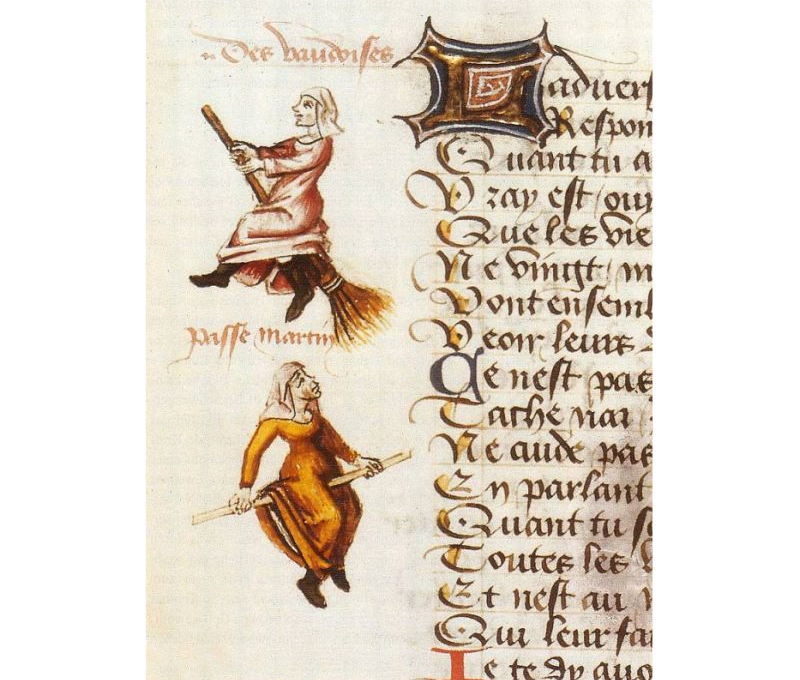 Des vaudoises
Passe martin
Laduers
Respon
Quant tu a
Vray est ouy
Que les vie
Ne vingt m
Vont ensembl
Veoir leurs
Ce nest pas
Tache nai
Ne cuide pas
En parlant
Quant tu sc
Toutes les
Et nest au
Qui leur fai
Ie te dy auo